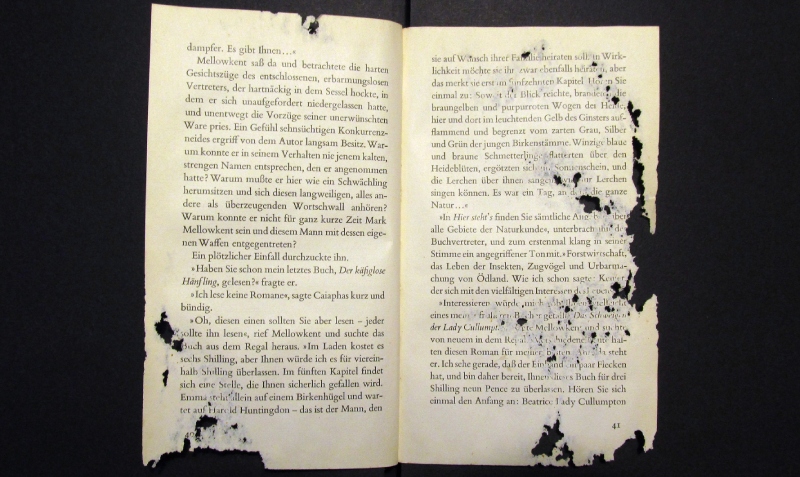 dampfer. Es gibt Ihnen...«
Mellowkent saß da und betrachtete die harten
Gesichtszüge des entschlossenen, erbarmungslosen
Vertreters, der hartnäckig in dem Sessel hockte, in
dem er sich unaufgefordert niedergelassen hatte,
und unentwegt die Vorzüge seiner unerwünschten
Ware pries. Ein Gefühl sehnsüchtigen Konkurrenz-
neides ergriff von dem Autor langsam Besitz. War-
um konnte er in seinem Verhalten nie jenem kalten,
strengen Namen entsprechen, den er angenommen
hatte? Warum mußte er hier wie ein Schwächling
herumsitzen und sich diesen langweiligen, alles an-
dere als überzeugenden Wortschwall anhören?
Warum konnte er nicht für ganz kurze Zeit Mark
Mellowkent sein und diesem Mann mit dessen eige-
nen Waffen entgegentreten?
Ein plötzlicher Einfall durchzuckte ihn.
»Haben Sie schon mein letztes Buch, Der käfiglose
Hänfling, gelesen?« fragte er.
»Ich lese keine Romane«, sagte Caiaphas kurz und
bündig.
»Oh, diesen einen sollten Sie aber lesen – jeder
sollte ihn lesen«, rief Mellowkent und suchte das
Buch aus dem Regal heraus. »Im Laden kostet es
sechs Shilling, aber Ihnen würde ich es für vierein-
halb Shilling überlassen. Im fünften Kapitel findet
sich eine Stelle, die Ihnen sicherlich gefallen wird.
Emma steht allein auf einem Birkenhügel und war-
tet auf Harold Huntingdon – das ist der Mann, den
40
sie auf Wunsch ihrer Familie heiraten soll. In Wirk-
lichkeit möchte sie ihn zwar ebenfalls heiraten, aber
das merkt sie erst im fünfzehnten Kapitel. Hören Sie
einmal zu: Soweit der Blick reichte, brandeten die
braungelben und purpurroten Wogen des Heide,
hier und dort im leuchtenden Gelb des Ginsters auf-
flammend und begrenzt vom zarten Grau, Silber
und Grün der jungen Birkenstämme. Winzige blaue
und braune Schmetterlinge flatterten über den
Heideblüten, ergötzten sich im Sonnenschein, und
die Lerchen über ihnen sangen, wie nur Lerchen
singen können. Es war ein Tag, an dem die ganze
Natur...«
»In Hier steht's finden Sie sämtliche über
alle Gebiete der Naturkunde«, unterbrach ihn der
Buchvertreter, und zum erstenmal klang in seiner
Stimme ein angriffener Ton mit. »Forstwirtschaft,
das Leben der Insekten, Zugvögel und Urbarma-
chung von Ödland. Wie ich schon sagte: Keiner,
der sich mit den vielfältigen Interessen des
»Interessieren würde mich
eines meiner Bücher gefällt: Das Schweigen
der Lady Cullumpton Mellowkent und suchte
von neuem in dem Regal. »Verschiedene Leute hal-
ten diesen Roman für meinen besten. steht
er. Ich sehe gerade, daß der Einband ein paar Flecken
hat, und bin daher bereit, Ihnen dieses Buch für drei
Shilling neun Pence zu überlassen. Hören Sie sich
einmal den Anfang an: Beatrice Lady Cullumpton
41